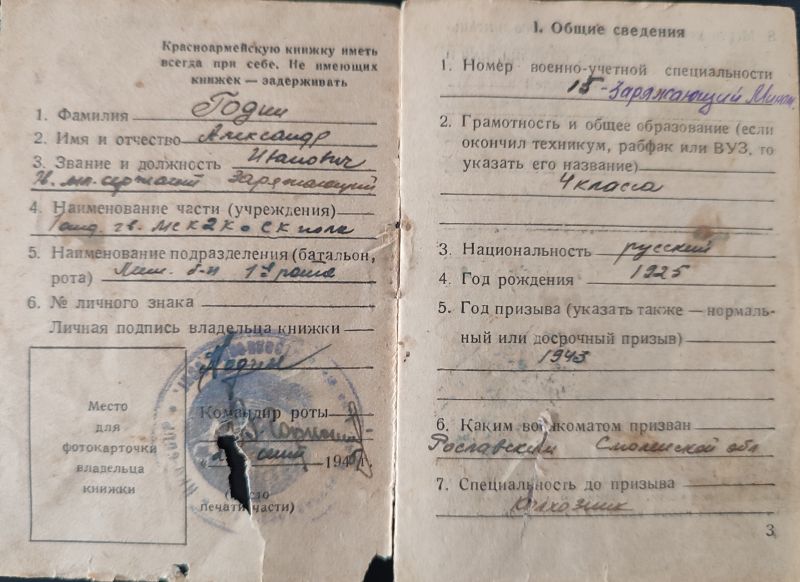 Красноармейскую книжку иметь
всегда при себе. Не имеющих
книжек — задерживать
1. Фамилия Годин
2. Имя и отчество Александр
Иванович
3. Звание и должность
Гв. мл. сержант Заряжающий
4. Наименование части (учреждения)
гв.
5. Наименование подразделения (батальон,
рота) б-н 1я рота
6. № личного знака
Личная подпись владельца книжки
Годин
Командир роты
194 г.
Место
для
фотокарточки
владельца
книжки
печати части)
1. Общие сведения
1. Номер военно-учетной специальности
15-Заряжающий Мином.
2. Грамотность и общее образование (если
окончил техникум, рабфак или ВУЗ, то
указать его название)
4 класса
3. Национальность русский
4. Год рождения 1925
5. Год призыва (указать также — нормаль-
ный или досрочный призыв)
1943
6. Каким военкоматом призван
Рославским Смоленской обл
7. Специальность до призыва
колхозник
3